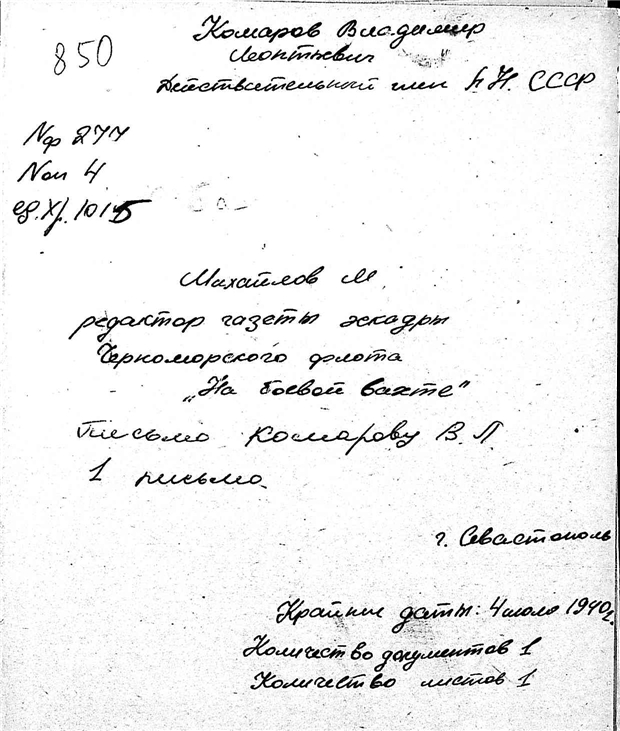 850
Комаров Владимир
Леонтьевич
Действительный член А.Н. СССР
Nф 277
Nоп 4
ед.хр. 1015
Михайлов М.
редактор газеты эскадры
Черноморского флота
„На боевой вахте“
Письмо Комарову В.Л.
1 письмо
г. Севастополь
Крайние даты: 4 июля 1940г.
Количество документов 1
Количество листов 1